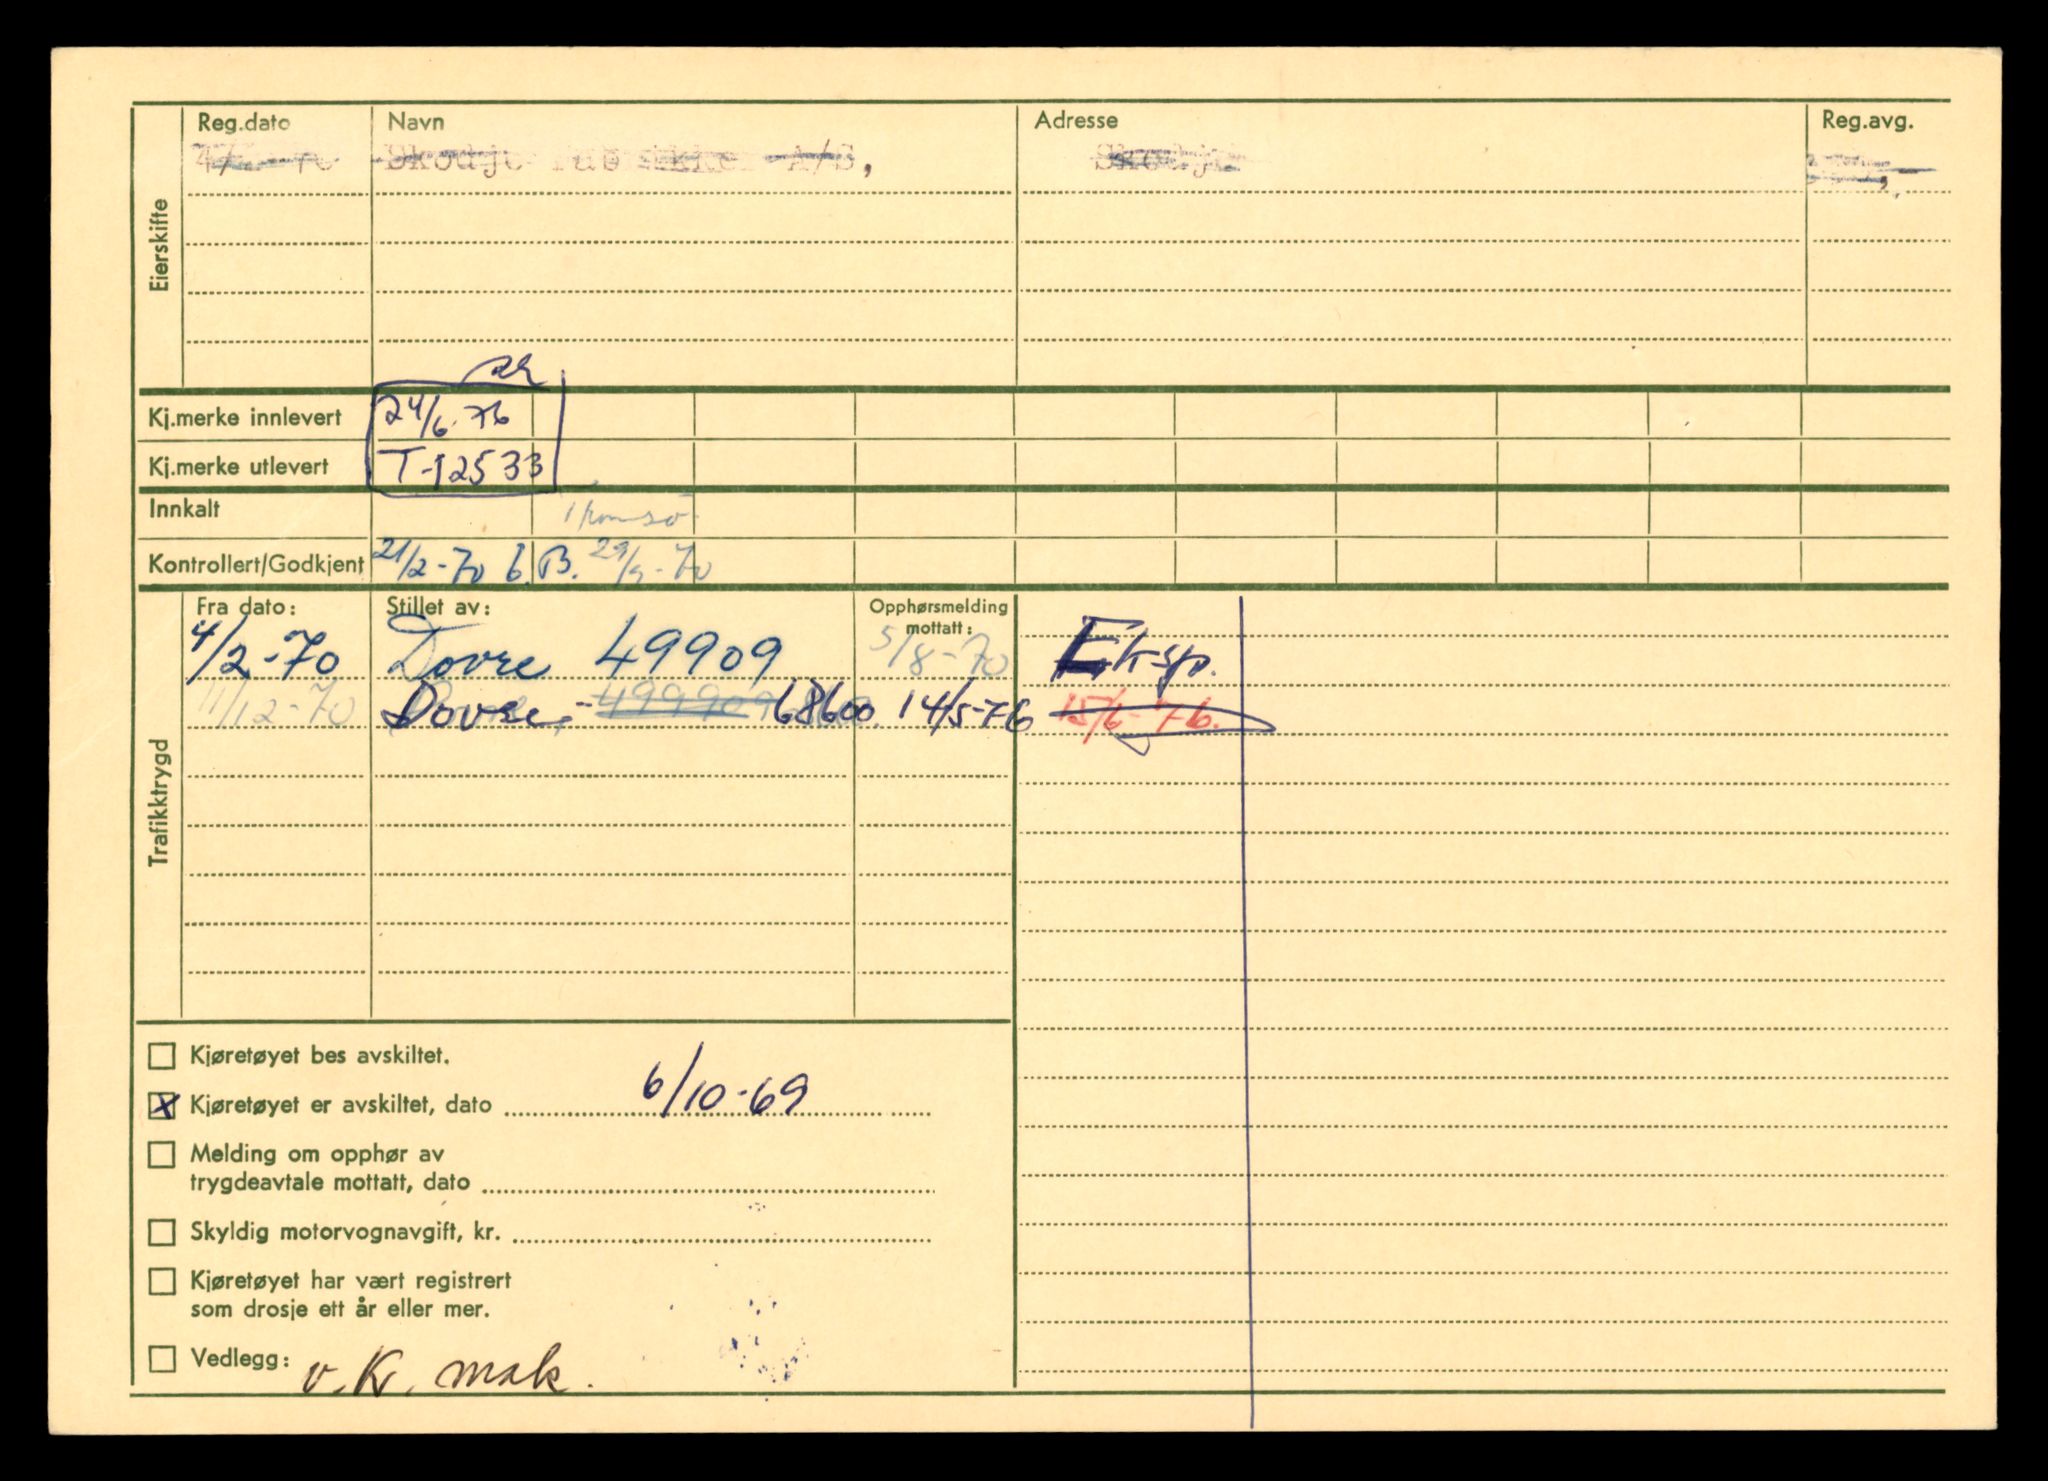 Reg.dato Navn Adresse Reg.avg.
Skodje A/S, Skodje
Eierskifte
Kj.merke innlevert 24/6-76
Kj.merke utlevert T-12533
Innkalt
Kontrollert/Godkjent 21/2-70 B. 29/9-70
Trafikktrygd
Fra dato: Stillet av: Opphørsmelding mottatt:
4/2-70 Dovre 49909 5/8-70 Eksp.
11/12-70 Dovre - 499909 68600 14/5-76 15/6-76.
Kjøretøyet bes avskiltet.
x Kjøretøyet er avskiltet, dato 6/10-69
Melding om opphør av
trygdeavtale mottatt, dato
Skyldig motorvognavgift, kr.
Kjøretøyet har vært registrert
som drosje ett år eller mer.
Vedlegg: v. kr. mak.